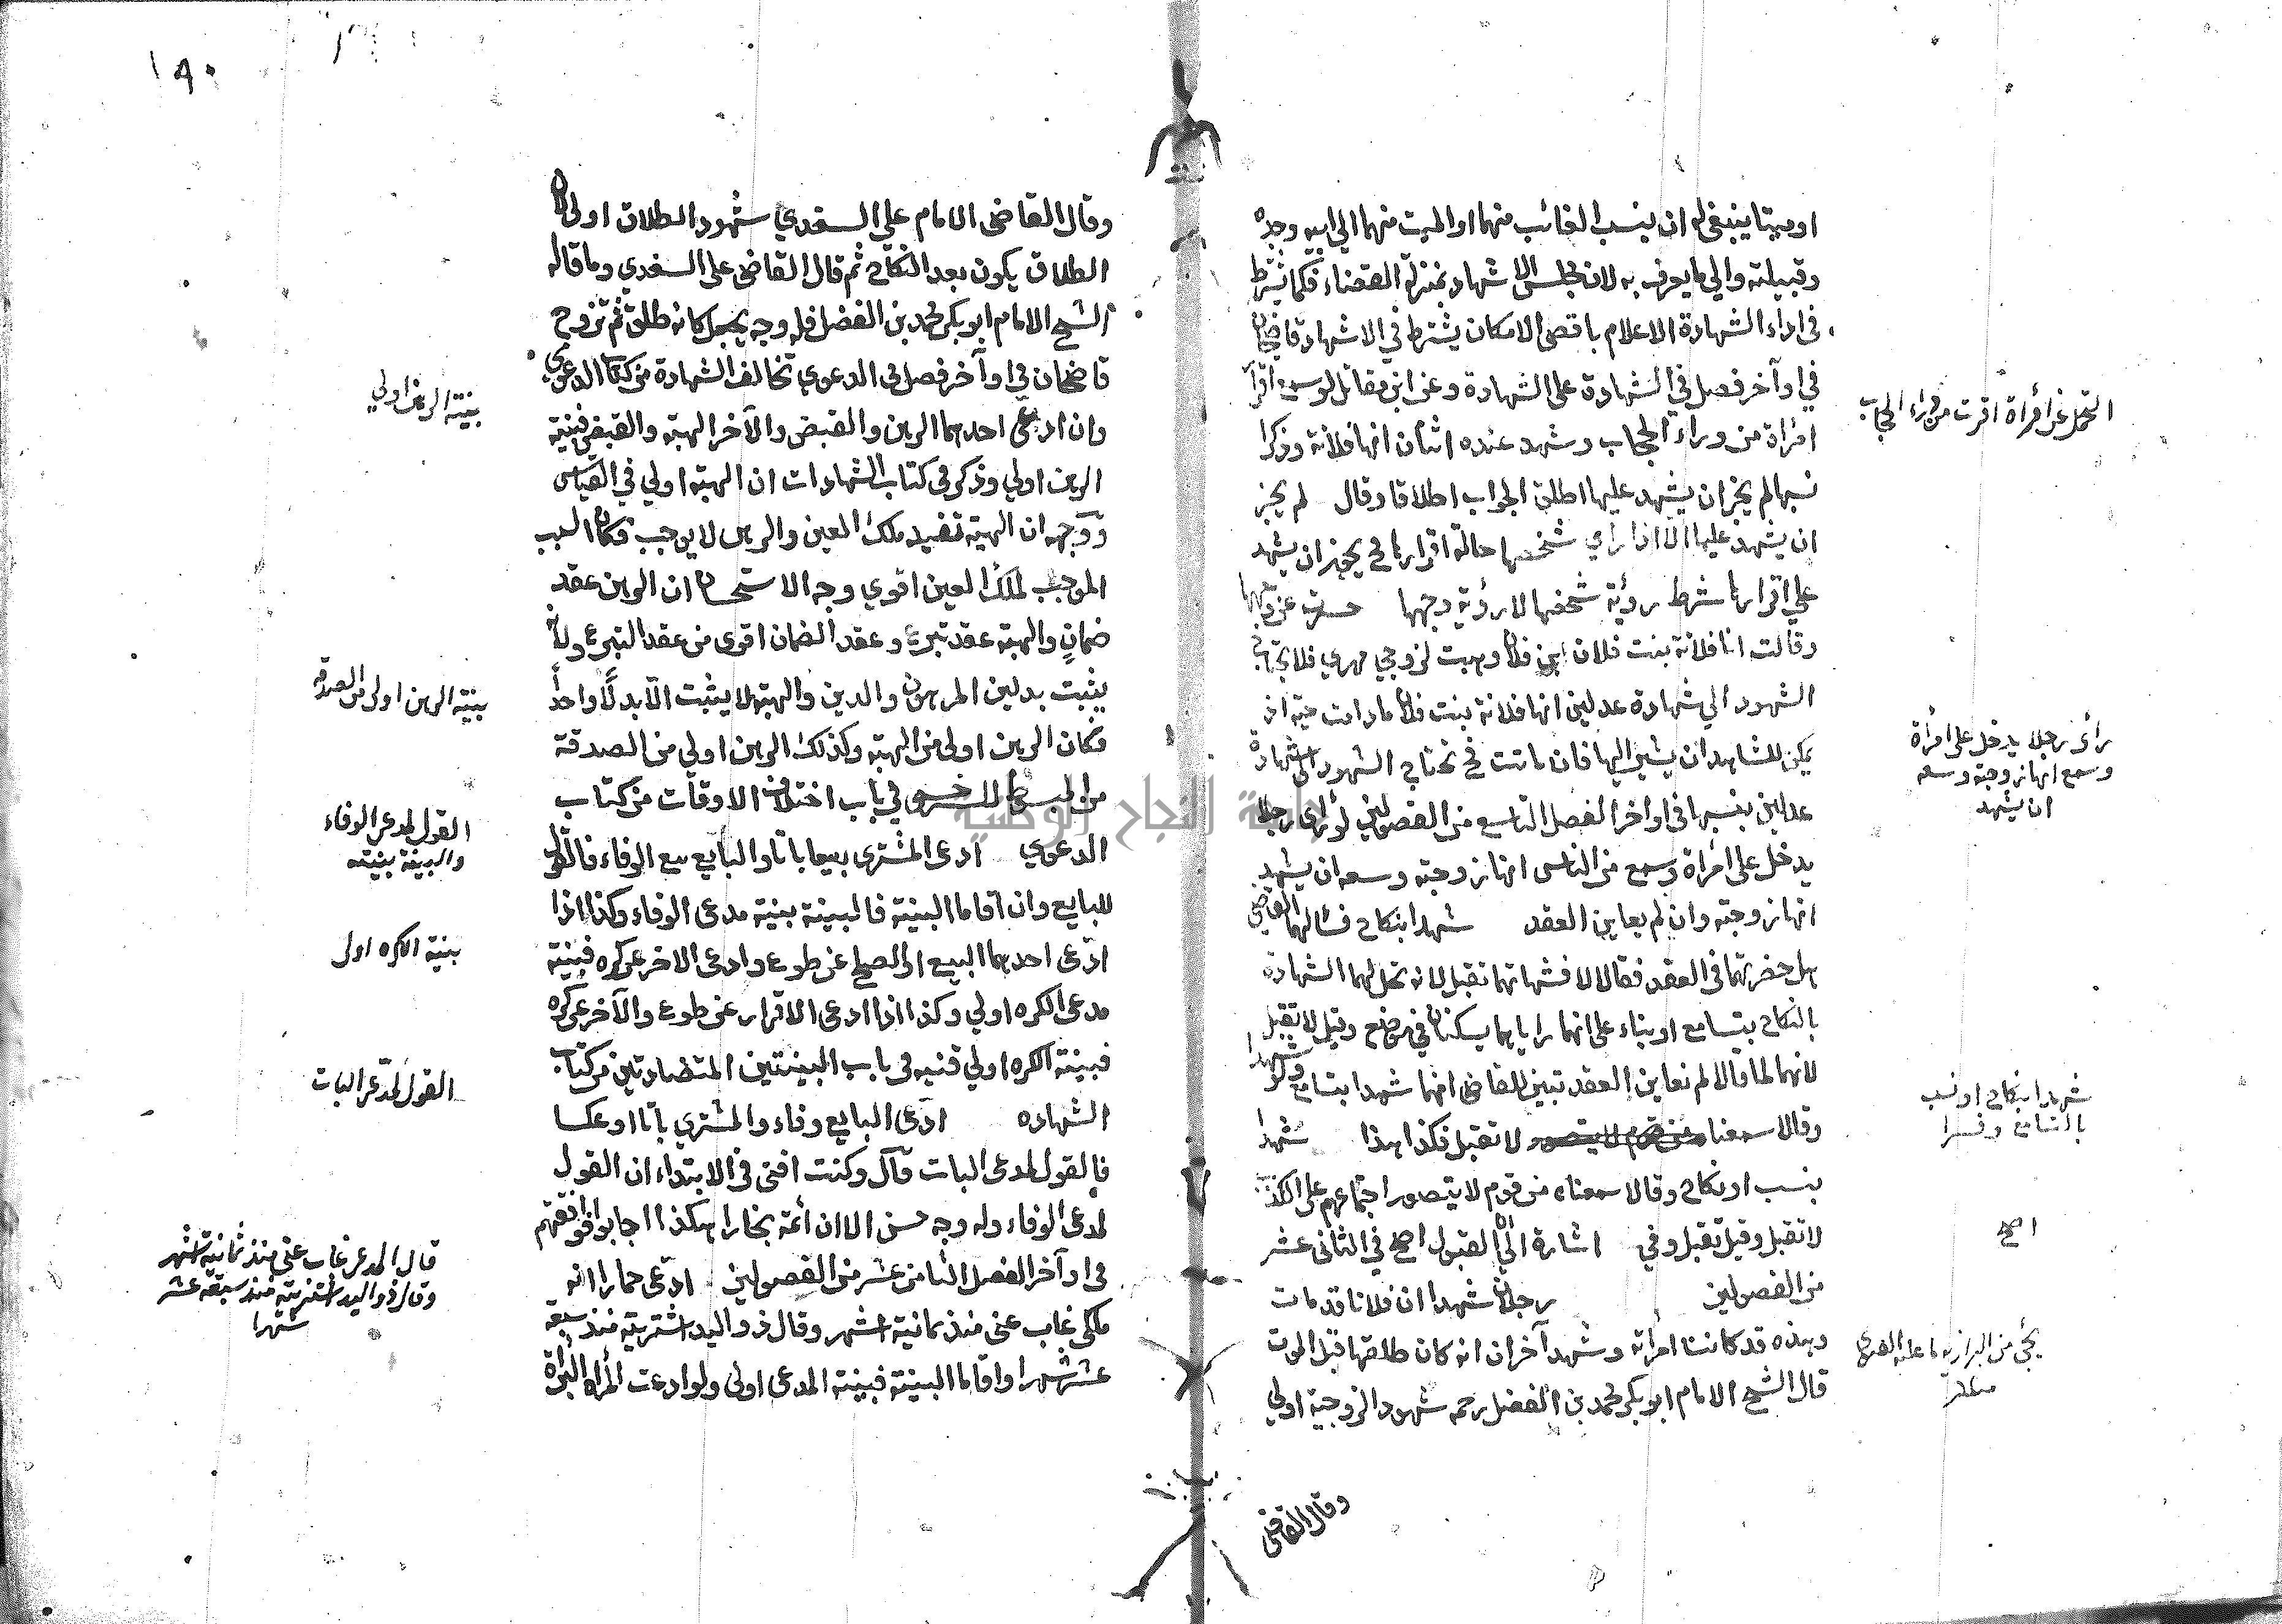 او ميتا ينبغي له ان ينسب الغائب منهما او الميت منهما الي ابيه وجده
وقبيلته والي ما يعرف به لان مجلس الاشهاد بمنزلة القضاء فكما يشترط
في اداء الشهادة الاعلام باقصى الامكان يشترط في الاشهاد قاضيخان
في اوآخر فصل في الشهادة على الشهادة وعن ابن مقاتل لو سمع اقرار
امرأة من وراء الحجاب وشهد عنده اثنان انها فلانة وذكرا
نسبها لم يجز ان يشهد عليها اطلق الجواب اطلاقا وقال لم يجز
ان يشهد عليها الا اذا راي شخصها حالة اقرارها فح يجوز ان يشهد
علي اقرارها شرط رؤية شخصها لا رؤية وجهها حسرت عن وجهها
وقالت انا فلانة بنت فلان ابن فلان وهبت لزوجي مهري فلا يحتاج
الشهود الي شهادة عدلين انها فلانة بنت فلان ما دامت حية اذ
يمكن للشاهد ان يشير اليها فان ماتت فح تحتاج الشهود الى شهادة
عدلين بنسبها في اواخر الفصل التاسع من الفصولين لو رأى رجلا
يدخل على امرأة وسمع من الناس انها زوجته وسعه ان يشهد
انها زوجته وان لم يعاين العقد شهدا بنكاح فسألهما القاضي
هل حضرتما في العقد فقالا لا فشهادتهما تقبل لانه تحل لهما الشهادة
بالنكاح بتسامع او بناء على انهما راياهما يسكنان في موضع وقيل لا تقبل
لانهما لما قالا لم نعاين العقد تبين للقاضي انهما شهدا بتسامع ولو شهدا
وقالا سمعنا لا تقبل فكذا هذا شهدا
بنسب او نكاح وقالا سمعناه من قوم لا يتصور اجتماعهم على الكذب
لا تقبل وقيل تقبل وفي اشارة الى ان القبول اصح في الثاني عشر
من الفصولين رجلان شهدا ان فلانا قد مات
وهذه قد كانت امرأته وشهد آخران انه كان طلقها قبل الموت
قال الشيخ الامام ابو بكر محمد بن الفضل رحمه شهود الزوجية اولي
وقال القاضي
التحمل عن امرأة اقرت من وراء الحجاب
رأى رجلا يدخل على امرأة
وسمع انها زوجته وسعه
ان يشهد
شهدا بنكاح او نسب
بالتسامع وفسرا
اصح
يجئ من البزازية ما عليه الفتوى
١٩٠
وقال القاضي الامام على السغدي شهود الطلاق اولى لان
الطلاق يكون بعد النكاح ثم قال القاضي على السغدي وما قاله
الشيخ الامام ابو بكر محمد بن الفضل فله وجه يجعل كانه طلق ثم تزوج
قاضيخان في اوآخر فصل في الدعوي تخالف الشهادة من كتاب الدعوي
وان ادعى احدهما الرهن والقبض والآخر الهبة والقبض فبينة
الرهن اولي وذكر في كتاب الشهادات ان الهبة اولي في القياس
ووجهه ان الهبة تفيد ملك العين والرهن لا يوجب فكان السبب
الموجب لملك العين اقوي وجه الاستحسان ان الرهن عقد
ضمان والهبة عقد تبرع وعقد الضمان اقوى من عقد التبرع ولانه
يثبت بدلين المرهون والدين والهبة لا يثبت الا بدلا واحدا
فكان الرهن اولى من الهبة وكذلك الرهن اولي من الصدقة
من المبسوط للسرخسي في باب اختلاف الاوقات من كتاب
الدعوي ادعى المشتري بيعا باتا والبايع بيع الوفاء فالقول
للبايع وان اقاما البينة فالبينة بينة مدعى الوفاء وكذا اذا
ادعى احدهما البيع او الصلح عن طوع وادعى الاخر عن كره فبينة
مدعى الكره اولي وكذا اذا ادعى الاقرار عن طوع والآخر عن كره
فبينة الكره اولي قنيه في باب البينتين المتضادتين من كتاب
الشهاده ادعى البايع وفاء والمشتري باتا او عكسا
فالقول لمدعى البات قال وكنت افتى في الابتداء ان القول
لمدعى الوفاء وله وجه حسن الا ان أئمة بخارا هكذا اجابوا فوافقتهم
في اوآخر الفصل الثامن عشر من الفصولين ادعى حمارا انه
ملكي غاب عني منذ ثمانية اشهر وقال ذو اليد اشتريته منذ سبعة
عشر شهرا واقاما البينة فبينة المدعى اولى ولو ادعت المرأة البراة
بينة الرهن اولي
بينة الرهن اولى من الصدقة
القول لمدعى الوفاء
والبينة بينته
بينة الكره اولى
القول لمدعى البات
قال المدعى غاب عني منذ ثمانية اشهر
وقال ذو اليد اشتريته منذ سبعة عشر
شهرا
جامعة النجاح الوطنية